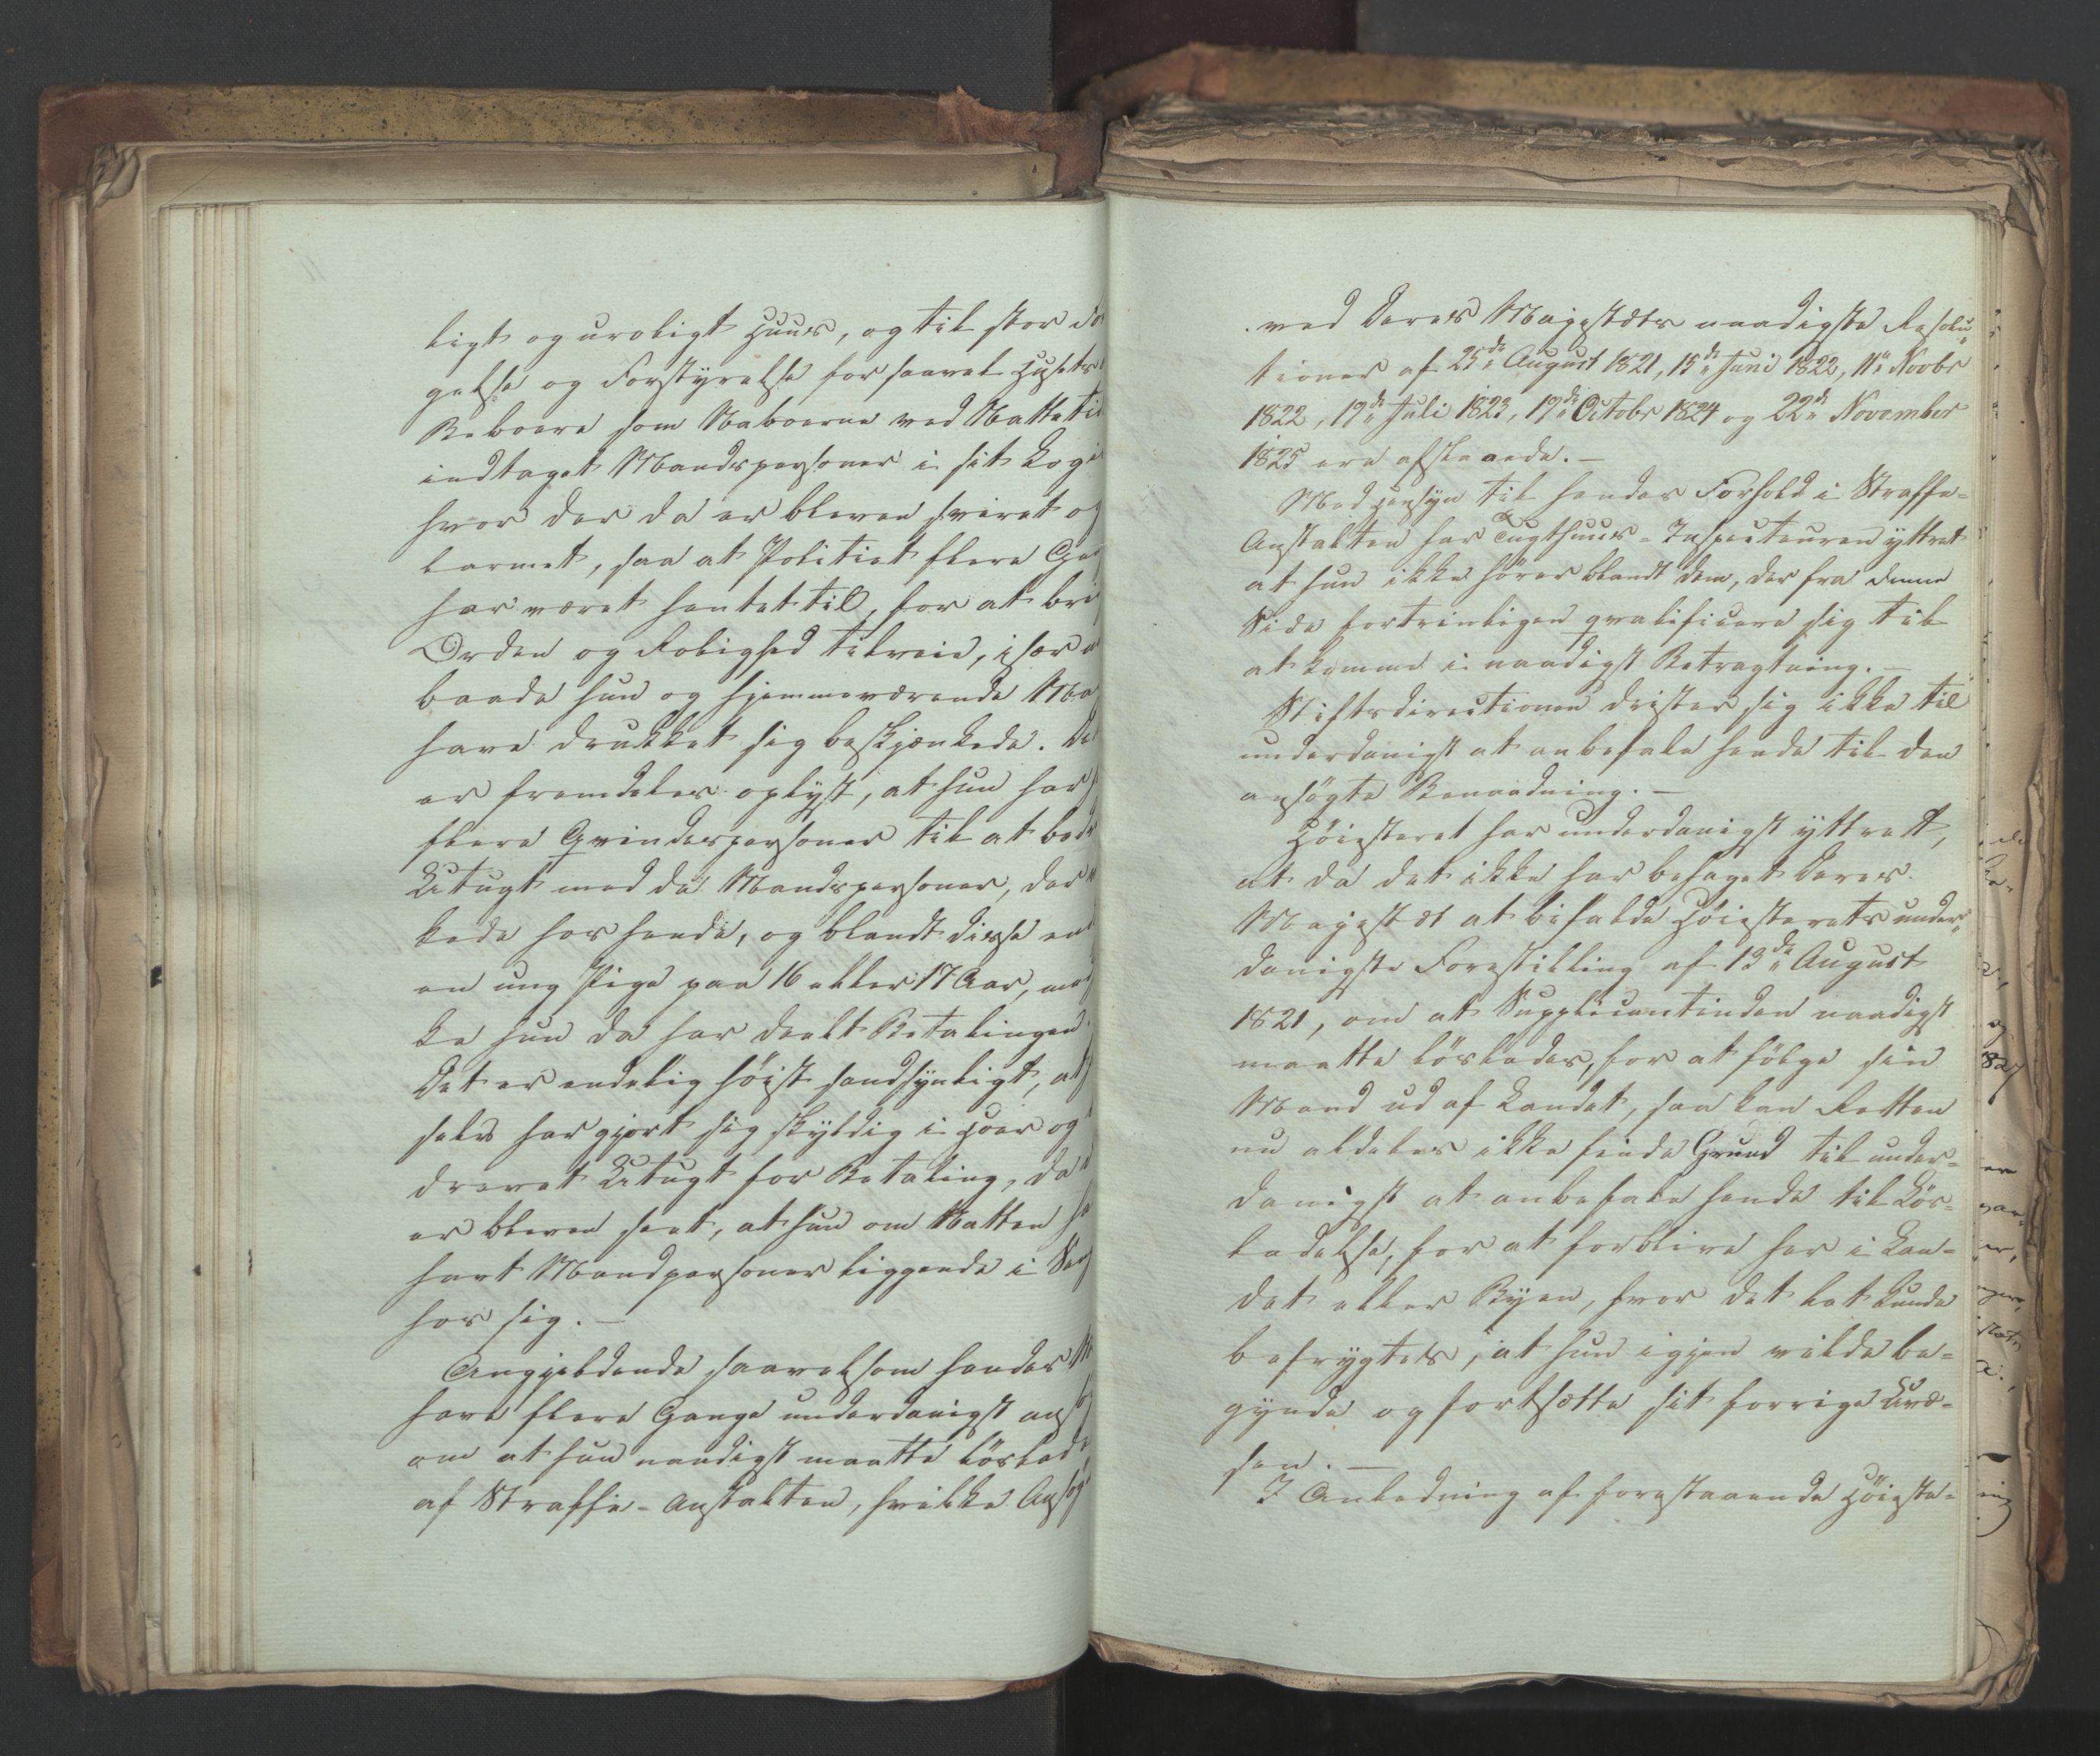 ligt og uroligt Huus, og til stor
gelse og Forstyrelse for saavel Husets
Beboere som Naboerne ved Nattetid
indtaget Mandspersoner i sit Logi
hvor der da er bleven sviret og
larmet, saa at Politiet flere Ga
har været hentet til, for at bri
Orden og Rolighed tilveie, især
baade hun og hjemmeværende Ma
have drukket sig beskjænkede. Det
er fremdeles oplyst, at hun har
flere Qvindespersoner til at bed
Utugt med de Mandspersoner, der
kede hos hende, og blandt disse end
en ung Pige paa 16 eller 17 Aar, med
ke hun da har deelt Betalingen.
Det er endelig höist sandsynligt, at
selv har gjort sig skyldig i Hoer og
drevet Utugt for Betaling, da
er bleven seet, at hun om Natten ha
havt Mandpersoner liggende i Sen
hos sig. —
Angjeldende saavelsom hendes
have flere Gange underdanigst ansö
om at hun naadigst maatte löslad
af Straffe-Anstalten, hvilke Ansög
ved Deres Majestæts naadigste Resolu
tioner af 25de August 1821, 15de Juni 1822, 11e Novbr
1822, 19de Juli 1823, 19de Octobr 1824 og 22de November
1825 ere afslaaede. —
Med Hensyn til hendes Forhold i Straffe-
Anstalten har Tugthuus-Inspecteuren yttret
at hun ikke hörer blandt dem, der fra denne
Side fortrinligen qvalificere sig til
at komme i naadigst Betragtning. —
Stiftsdirectionen drister sig ikke til
underdanigst at anbefale hende til den
ansögte Benaadning. —
Höiesteret har underdanigst yttrett,
at da det ikke har behaget Deres
Majestæt at bifalde Höiesterets under
danigste Forestilling af 13de August
1821, om at Supplicantinden naadigst
maatte löslades, for at fölge sin
Mand ud af Landet, saa kan Retten
nu aldeles ikke finde Grund til under-
danigst at anbefale hende til Lös-
ladelse, for at forblive her i Lan-
det eller Byen, hvor det let kunde
befrygtes, at hun igjen vilde be-
gynde og fortsætte sit forrige Uvæ-
sen. —
I Anledning af forestaaende Höieste-